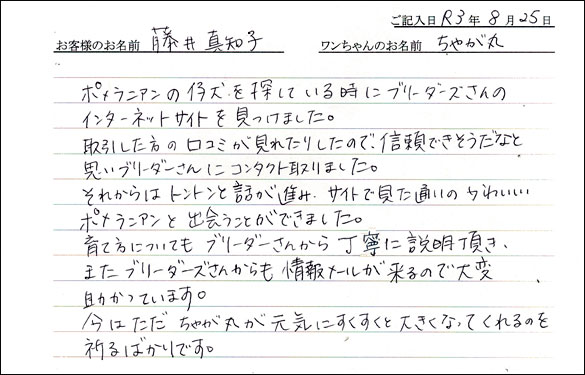 ご記入日 R3年 8月 25日
お客様のお名前 藤井 真知子 ワンちゃんのお名前 ちゃが丸
ポメラニアンの仔犬を探している時にブリーダーズさんの
インターネットサイトを見つけました。
取引した方の口コミが見れたりしたので、信頼できそうだなと
思いブリーダーさんにコンタクト取りました。
それからはトントンと話が進み、サイトで見た通いのかわいいい
ポメラニアンと出会うことができました。
育て方についてもブリーダーさんから丁寧に説明頂き、
またブリーダーズさんからも情報メールが来るので大変
助かっています。
今はただちゃが丸が元気にすくすくと大きくなってくれるのを
祈るばかりです。